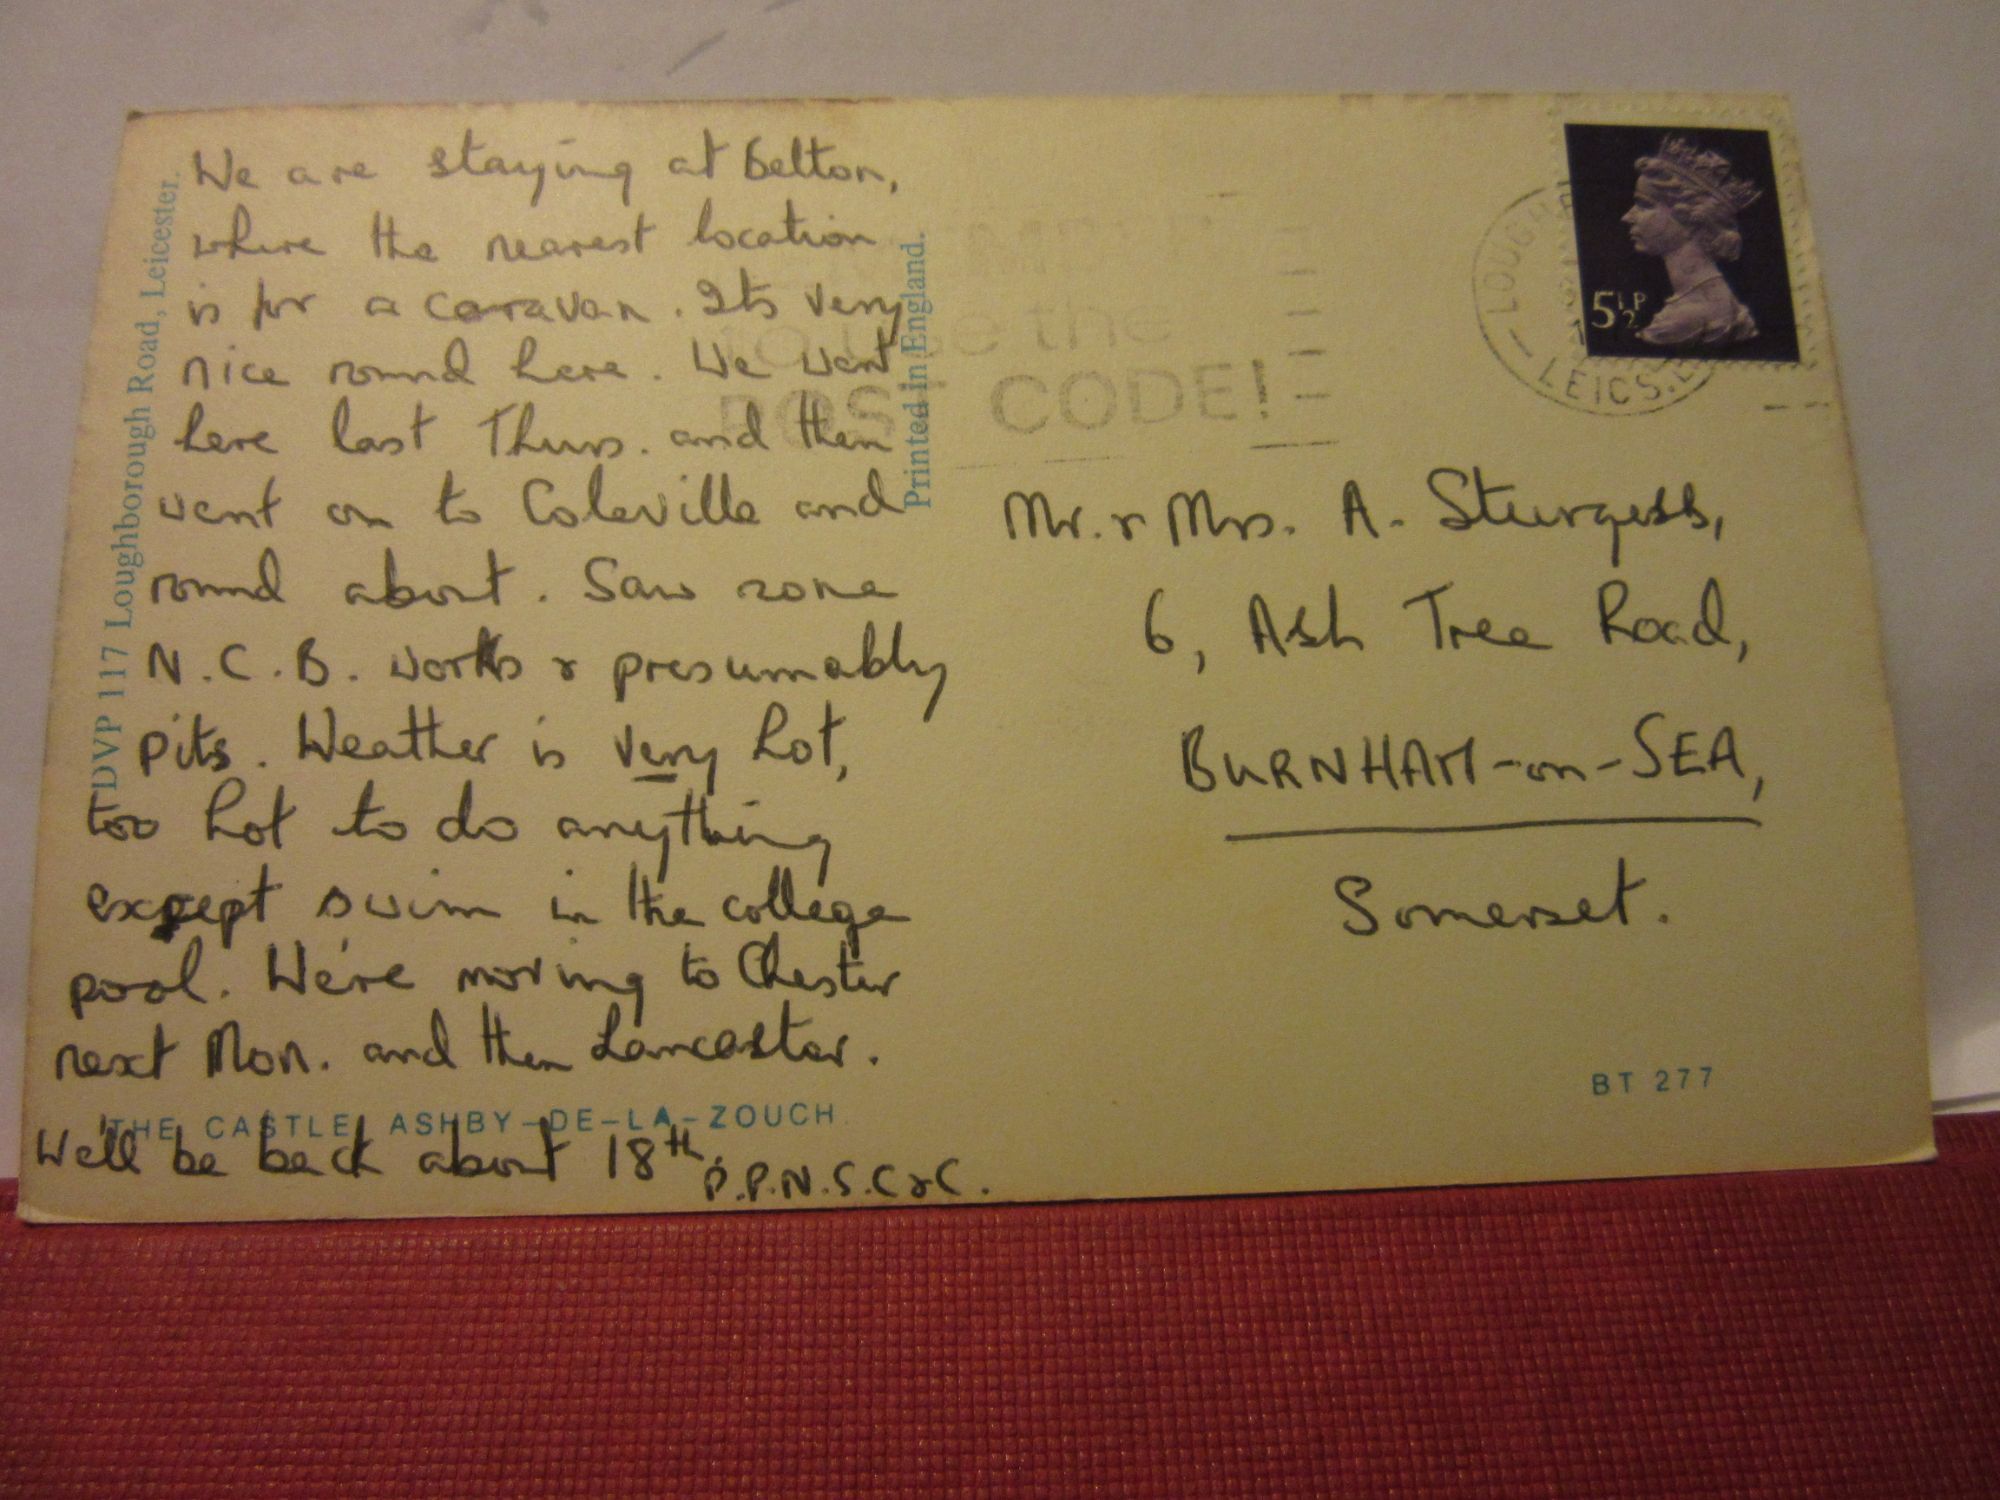 We are staying at Belton,
where the nearest location
is for a caravan. Its very
nice round here. We went
here last Thurs. and then
went on to Coleville and
round about. Saw some
N.C.B. works & presumably
pits. Weather is very hot,
too hot to do anything
except swim in the college
pool. We're moving to Chester
next Mon. and then Lancaster.
We'll be back about 18th.
P.P.N.S.C&C.
THE CASTLE ASHBY-DE-LA-ZOUCH
DVP 117 Loughborough Road, Leicester.
Printed in England.
to use the
POST CODE!
5½P
LEICS.
Mr. & Mrs. A. Sturgess,
6, Ash Tree Road,
BURNHAM-on-SEA,
Somerset.
BT 277